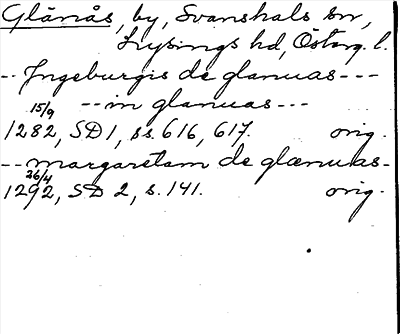 Glänås, by, Svanshals sn,
Lysings hd, Österg. l.
-- Ingeburgis de glanuas ---
-- in glanuas ---
15/9
1282, SD 1, ss. 616, 617. orig.
-- margaretam de glænuas -
26/4
1292, SD 2, s. 141. orig.